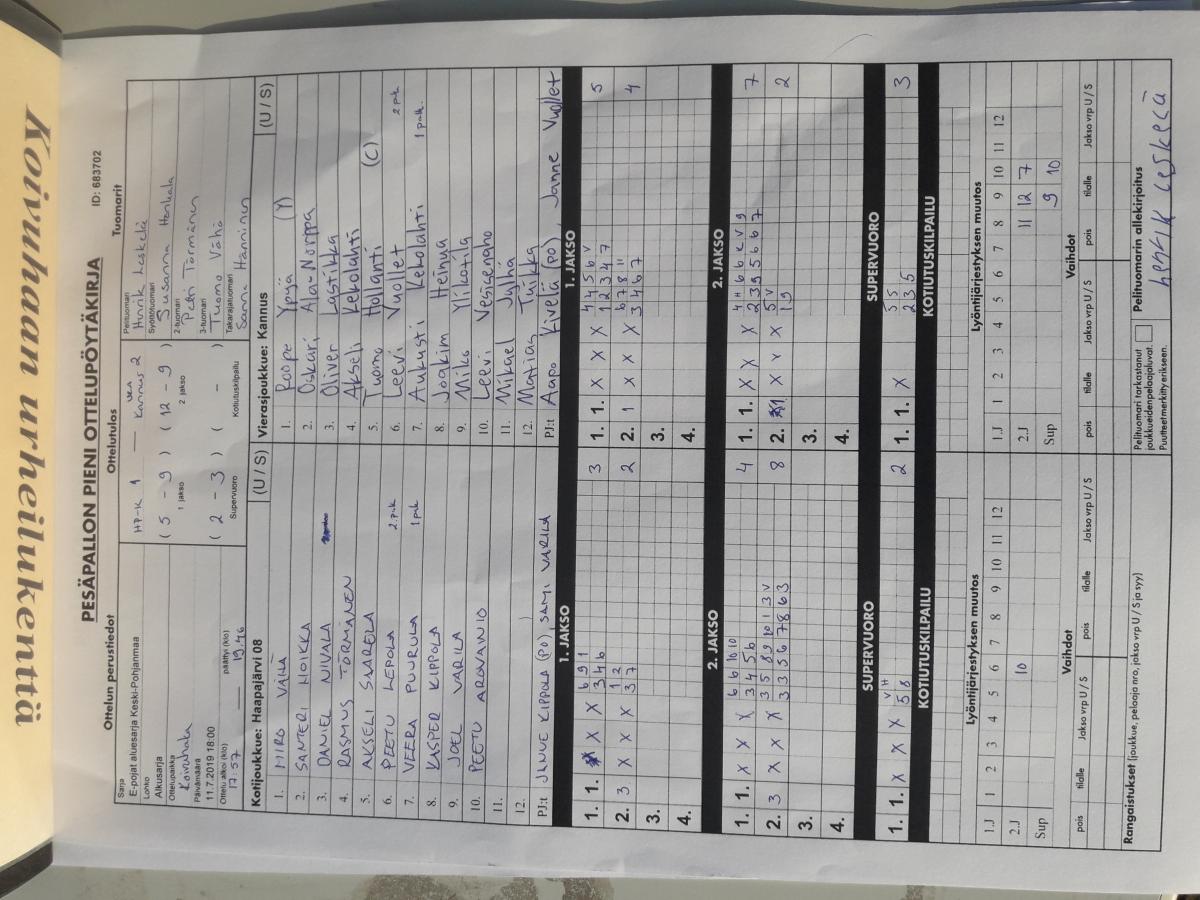 Koivuhaan urheilukenttä
PESÄPALLON PIENI OTTELUPÖYTÄKIRJA
ID: 683702
Ottelun perustiedot
Ottelutulos
Tuomarit
Sarja
E-pojat aluesarja Keski-Pohjanmaa
Lohko
Alkusarja
Ottelupaikka
Koivuhaka
Päivämäärä
11.7.2019 18:00
Ottelu alkoi (klo)
17:57
päättyi (klo)
19.46
HP-K 1 — Kannus 2
( 5 - 9 ) ( 12 - 9 )
1 jakso 2 jakso
( 2 - 3 ) ( - )
Supervuoro Kotiutuskilpailu
Pelituomari
Henrik Leskelä
Syöttötuomari
Susanna Honkala
2-tuomari
Petri Törmänen
3-tuomari
Tuomo Vähä
Takarajatuomari
Sanna Hänninen
Kotijoukkue: Haapajärvi 08 (U / S)
1. MIRO VÄLIÄ
2. SANTERI HOIKKA
3. DANIEL NIVALA
4. RASMUS TÖRMÄNEN
5. AKSELI SAARELA
6. PEETU LEPOLA 2.puk
7. VEERA PUURULA 1 puk
8. KASPER KIPPOLA
9. JOEL VARILA
10. PEETU AROVANIO
11.
12.
PJ:t JANNE KIPPOLA (PO) SAMI VARILA
Vierasjoukkue: Kannus (U / S)
1. Roope Ypyä (Y)
2. Oskari Ala-Norppa
3. Oliver Lastikka
4. Akseli Kekolahti
5. Tuomo Hollanti (C)
6. Leevi Vuollet 2 puk
7. Aukusti Kekolahti 1 puk.
8. Joakim Heinua
9. Miko Ylikotila
10. Leevi Vesisenaho
11. Mikael Jylhä
12. Matias Taikka
PJ:t Aapo Kivelä (PO), Janne Vuollet
1. JAKSO
1. 1. X X X 6 9 1 3
3 4 6
2. 3 X X X 1 2 2
3 7
3.
4.
1. JAKSO
1. 1. X X X 4 4 5 6 V 5
1 2 3 4 7
2. 1 X X X 6 7 8 11 4
3 4 6 7
3.
4.
2. JAKSO
1. 1. X X X 6 6 10 10 4
3 4 5 6
2. 3 X X X 3 5 8 9 10 1 3 V 8
3 3 5 6 7 8 6 3
3.
4.
2. JAKSO
1. 1. X X X 4 H 6 6 K V 9 7
2 3 3 5 6 6 7
2. 1 X X X 5 V 2
1 9
3.
4.
SUPERVUORO
1. 1. X X X V H 2
5 8
SUPERVUORO
1. 1. X 5 5 3
2 3 5
KOTIUTUSKILPAILU
KOTIUTUSKILPAILU
Lyöntijärjestyksen muutos
1.J 1 2 3 4 5 6 7 8 9 10 11 12
2.J 10
Sup
Lyöntijärjestyksen muutos
1.J 1 2 3 4 5 6 7 8 9 10 11 12
2.J 11 12 7
Sup 9 10
Vaihdot
pois tilalle Jakso vrp U / S pois tilalle Jakso vrp U / S
Vaihdot
pois tilalle Jakso vrp U / S pois tilalle Jakso vrp U / S
Rangaistukset (joukkue, pelaaja nro, jakso vrp U / S ja syy)
Pelituomari tarkastanut
joukkueidenpelaajaluvat.
Puutteetmerkittyerikseen.
Pelituomarin allekirjoitus
Henrik Leskelä